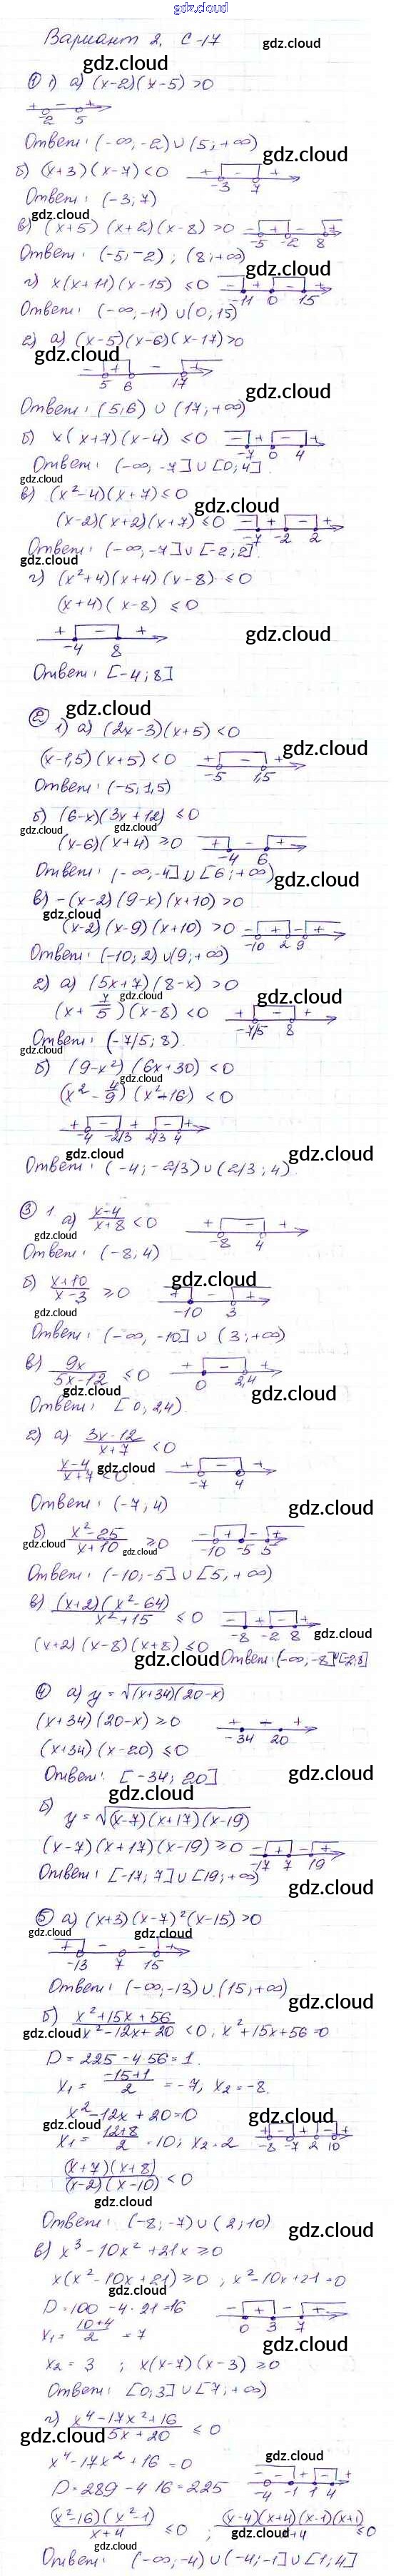 gdz.cloud
Вариант 2. С-17
gdz.cloud
gdz.cloud
① 1) а) (x-2)(x-5) >0
+ - +
-2 5
gdz.cloud
Ответ: (-∞, -2) ∪ (5; +∞)
gdz.cloud
б) (x+3)(x-7) <0 + - +
-3 7
Ответ: (-3; 7)
gdz.cloud
в) (x+5)(x+2)(x-8) >0 - + - +
-5 -2 8
Ответ: (-5; -2) ; (8; +∞)
gdz.cloud
г) x(x+11)(x-15) ≤0 - + - +
-11 0 15
Ответ: (-∞, -11) ∪ (0; 15)
2) а) (x-5)(x-6)(x-17) >0
gdz.cloud
- + - +
5 6 17
gdz.cloud
Ответ: (5;6) ∪ (17; +∞)
gdz.cloud
б) x(x+7)(x-4) ≤0 - + - +
-7 0 4
Ответ: (-∞, -7] ∪ [0; 4]
gdz.cloud
в) (x²-4)(x+7) ≤0
gdz.cloud
(x-2)(x+2)(x+7) ≤0 - + - +
-7 -2 2
Ответ: (-∞, -7] ∪ [-2; 2]
gdz.cloud
г) (x²+4)(x+4)(x-8) ≤0
(x+4)(x-8) ≤0
gdz.cloud
+ - +
-4 8
Ответ: [-4; 8]
gdz.cloud
② 1) а) (2x-3)(x+5) <0
gdz.cloud
(x-1,5)(x+5) <0 + - +
-5 1,5
Ответ: (-5; 1,5)
б) (6-x)(3x+12) ≤0
gdz.cloud gdz.cloud
(x-6)(x+4) ≥0 + - +
-4 6
Ответ: (-∞, -4] ∪ [6; +∞)
gdz.cloud
в) -(x-2)(9-x)(x+10) >0
(x-2)(x-9)(x+10) >0 - + - +
-10 2 9
Ответ: (-10; 2) ∪ (9; +∞)
2) а) (5x+7)(8-x) >0
gdz.cloud gdz.cloud
(x+7/5)(x-8) <0 + - +
-7/5 8
Ответ: (-7/5; 8)
gdz.cloud
б) (9-x²)(6x+30) <0
gdz.cloud
(x²-4/9)(x²-16) <0
+ - + - +
-4 -2/3 2/3 4
gdz.cloud gdz.cloud
Ответ: (-4; -2/3) ∪ (2/3; 4)
③ 1 а) x-4/x+8 <0 + - +
gdz.cloud
-8 4
Ответ: (-8; 4)
gdz.cloud
б) x+10/x-3 ≥0 + - +
-10 3
gdz.cloud
Ответ: (-∞, -10] ∪ (3; +∞)
в) 9x/5x-12 ≤0 + - +
0 2,4
gdz.cloud gdz.cloud
Ответ: [0; 2,4)
2) а) 3x-12/x+7 <0
x-4/x+7 <0 + - +
gdz.cloud
-7 4
Ответ: (-7; 4)
gdz.cloud
б) x²-25/x+10 ≥0 - + - +
gdz.cloud gdz.cloud
-10 -5 5
Ответ: (-10; -5] ∪ [5; +∞)
в) (x+2)(x²-64)/x²+15 ≤0 - + - +
-8 -2 8
gdz.cloud
(x+2)(x-8)(x+8) ≤0 Ответ: (-∞, -8] ∪ [-2; 8]
gdz.cloud
④ а) y = √(x+34)(20-x)
(x+34)(20-x) ≥0 + - +
-34 20
(x+34)(x-20) ≤0
gdz.cloud
Ответ: [-34; 20]
gdz.cloud
б) y = √(x-7)(x+17)(x-19)
(x-7)(x+17)(x-19) ≥0 - + - +
-17 7 19
Ответ: [-17; 7] ∪ [19; +∞)
gdz.cloud
⑤ а) (x+3)(x-7)²(x-15) >0
gdz.cloud gdz.cloud
+ - - +
-13 7 15
Ответ: (-∞, -13) ∪ (15; +∞)
gdz.cloud
б) x²+15x+56/x²-12x+20 <0; x²+15x+56=0
gdz.cloud
D = 225 - 4·56 = 1
x₁ = -15+1/2 = -7; x₂ = -8.
x²-12x+20=0
gdz.cloud gdz.cloud
x₁ = 12+8/2 = 10; x₂ = 2 + - + - +
-8 -7 2 10
(x+7)(x+8)/(x-2)(x-10) <0
gdz.cloud
Ответ: (-8; -7) ∪ (2; 10)
gdz.cloud
в) x³-10x²+21x ≥0
x(x²-10x+21) ≥0; x²-10x+21=0
gdz.cloud
D = 100 - 4·21 = 16 - + - +
0 3 7
x₁ = 10+4/2 = 7
gdz.cloud
x₂ = 3 ; x(x-7)(x-3) ≥0
Ответ: [0; 3] ∪ [7; +∞)
г) x⁴-17x²+16/5x+20 ≤0
gdz.cloud
x⁴-17x²+16=0
gdz.cloud
D = 289 - 4·16 = 225 - - + - +
-4 -1 1 4
(x²-16)(x²-1)/x+4 ≤0 ; (x-4)(x+4)(x-1)(x+1)/x+4 ≤0
gdz.cloud
gdz.cloud
Ответ: (-∞, -4) ∪ (-4; -1] ∪ [1; 4]